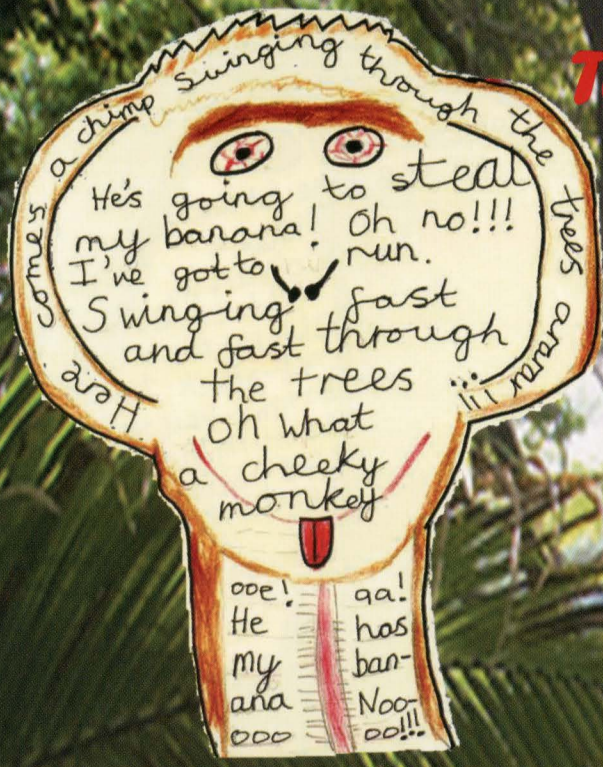 Here comes a chimp swinging through the trees ararar!!!
He's going to steal
my banana! Oh no!!!
I've got to run.
Swinging fast
and fast through
the trees
oh what
a cheeky
monkey
ooe! aa!
He has
my ban-
ana Noo-
ooo oo!!!
T